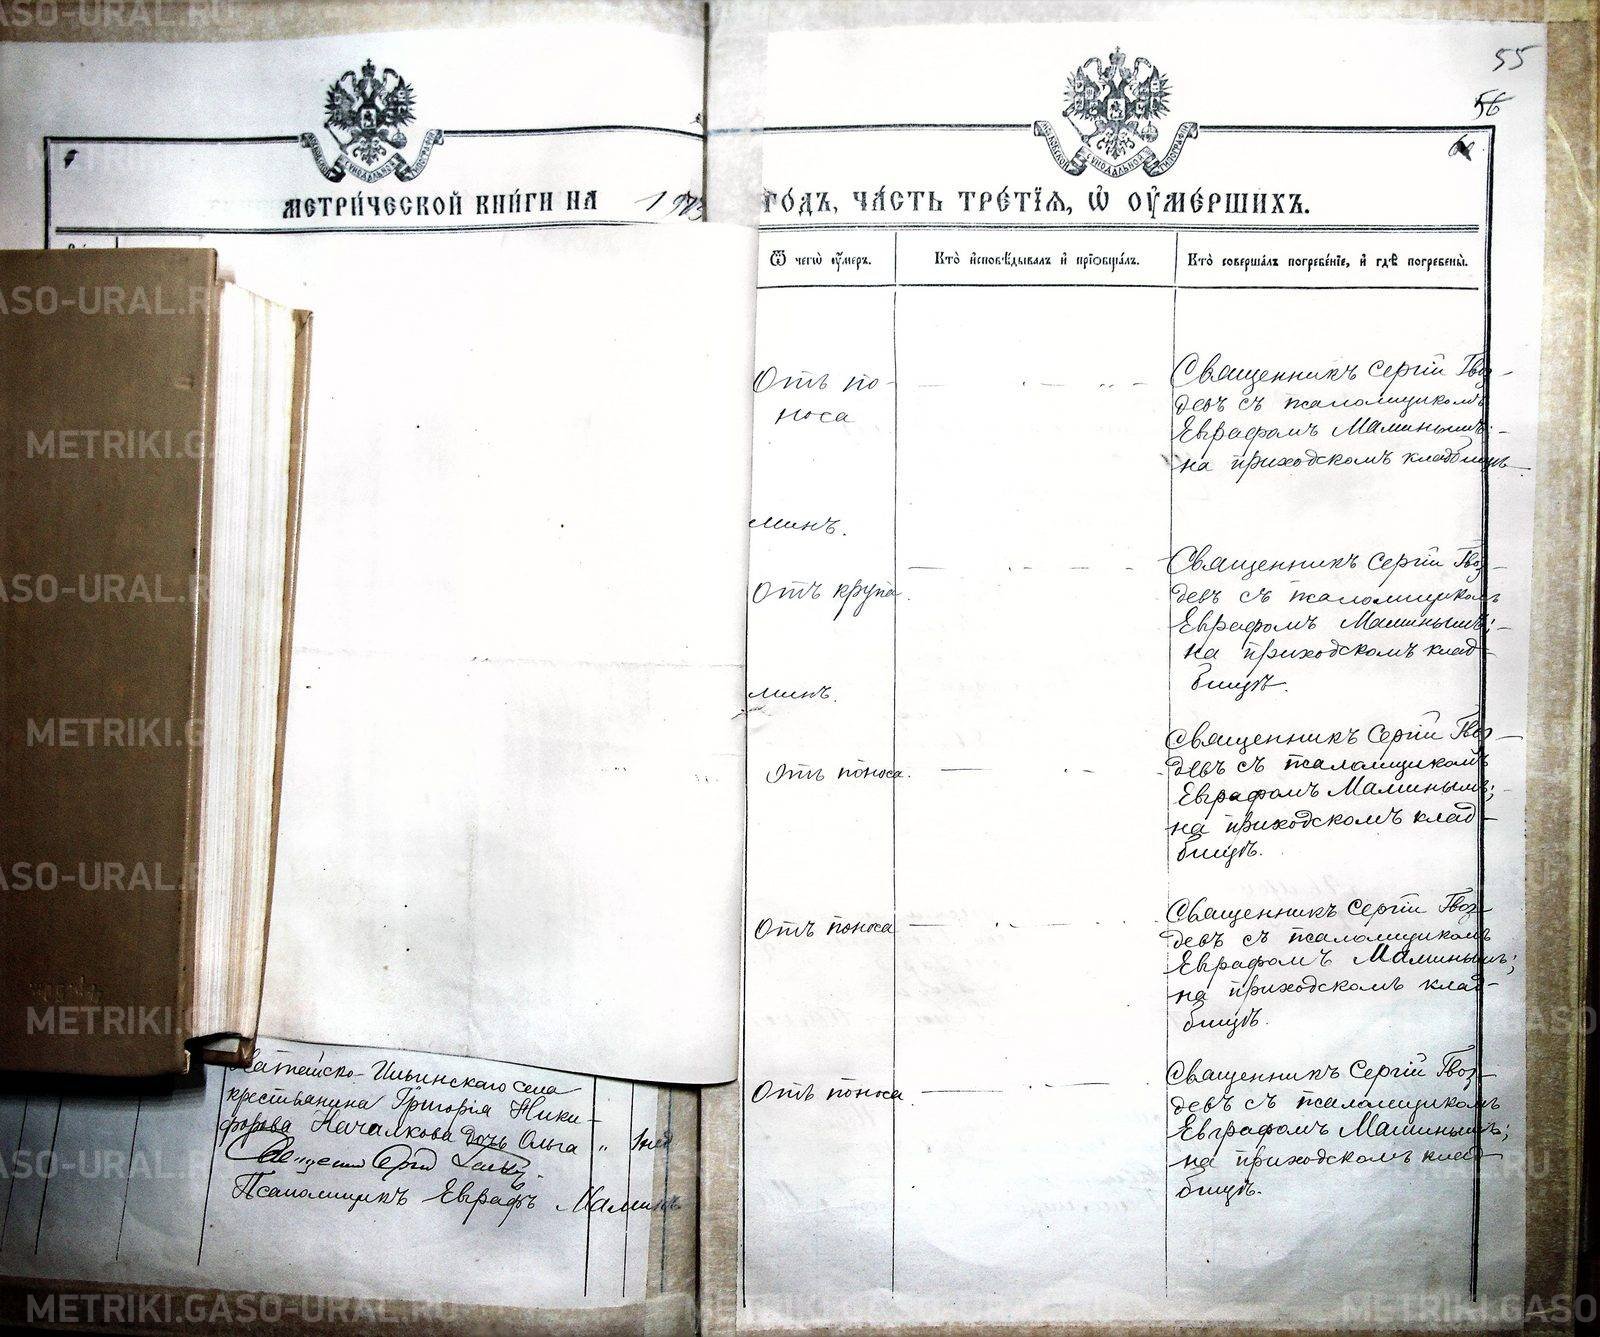 55
56
МЕТРИ́ЧЕСКОЙ КНИ́ГИ НА 1913 ГО́ДЪ, ЧА́СТЬ ТРЕ́ТІѦ, Ѡ҆ ОУ҆МЕ́РШИХЪ.
Ѿ чегѡ̀ оу҆́меръ.
Кто̀ и҆сповѣ́дывалъ и҆ прїѡбща́лъ.
Кто̀ соверша́лъ погребе́нїе, и҆ гдѣ̀ погребены̀.
Отъ по-
носа
Священникъ Сергій Гвоз-
девъ съ псаломщикомъ
Евграфомъ Маминымъ;
на приходскомъ кладбищѣ
минъ.
Отъ крупа.
Священникъ Сергій Гвоз-
девъ съ псаломщикомъ
Евграфомъ Маминымъ;
на приходскомъ клад-
бищѣ.
минъ.
Отъ поноса.
Священникъ Сергій Гвоз-
девъ съ псаломщикомъ
Евграфомъ Маминымъ;
на приходскомъ клад-
бищѣ.
Отъ поноса
Священникъ Сергій Гвоз-
девъ съ псаломщикомъ
Евграфомъ Маминымъ;
на приходскомъ клад-
бищѣ.
Отъ поноса.
Священникъ Сергій Гвоз-
девъ съ псаломщикомъ
Евграфомъ Маминымъ;
на приходскомъ клад-
бищѣ.
Ильинскаго села
крестьянина Григорія Ники-
форова Качалкова дочь Ольга
Священникъ Сергій
Псаломщикъ Евграфъ Маминъ
METRIKI.GASO-URAL.RU